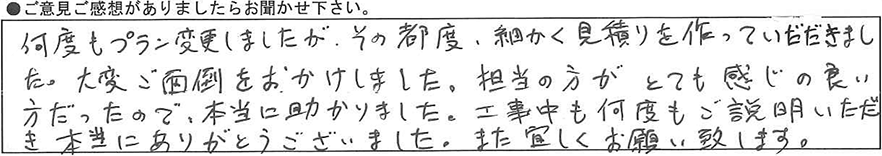 ●ご意見ご感想がありましたらお聞かせ下さい。
何度もプラン変更しましたが、その都度、細かく見積りを作っていだだきまし
た。大変ご面倒をおかけしました。担当の方がとても感じの良い
方だったので、本当に助かりました。工事中も何度もご説明いただ
き本当にありがとうございました。また宜しくお願い致します。